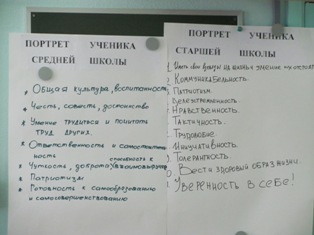 ПОРТРЕТ УЧЕНИКА
СРЕДНЕЙ ШКОЛЫ
Общая культура, воспитанность
Честь, совесть, достоинство
Умение трудиться и почитать
труд других.
Ответственность и самостоятель
ность
Чуткость, доброта,
Патриотизм
Готовность к самообразованию
и самосовершенствованию
ПОРТРЕТ УЧЕНИКА
СТАРШЕЙ ШКОЛЫ
свои взгляды на жизнь и умение их
Коммуникабельность.
Патриотизм.
Целеустремленность.
Нравственность.
Тактичность.
Трудовое.
Инициативность.
Толерантность.
Вести здоровый образ жизни.
Уверенность в себе!